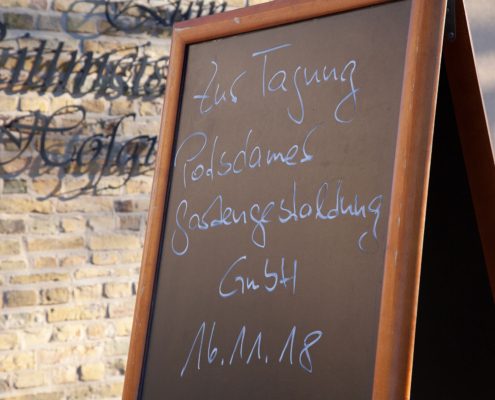 Zur Tagung
Potsdamer
Gartengestaldung
GmbH
16.11.18